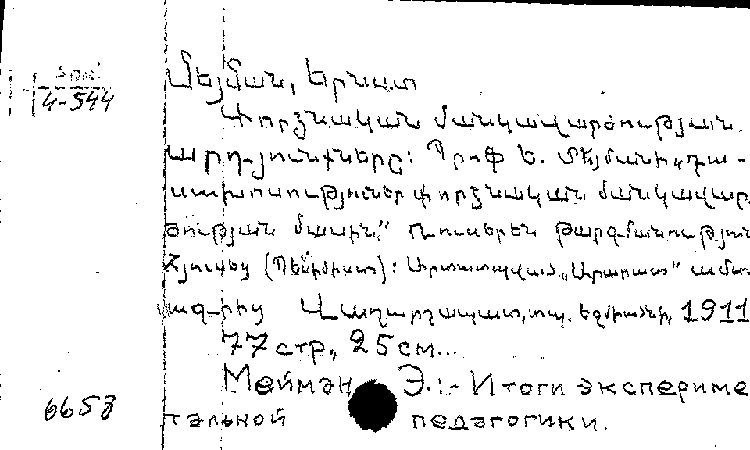 4-544
Մեյման, Երնստ
Փորձնական մանկավարժության
արդյունքները: Պրոֆ Ե. Մեյմանի „դա-
սախոսություններ փորձնական մանկավար
ժության մասին” Ռուսերեն թարգմանություն
(Պետմիստ): Արտատպված „Արարատ” ամսա
գրից Վաղարշապատ, տպ. Եջմիածնի, 1911
77 стр., 25 см...
Мейман Э. :- Итоги экспериме
6653
тальной педагогики.